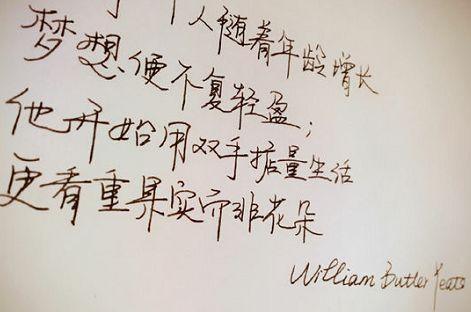 人随着年龄增长
梦想便不复轻盈；
他开始用双手掂量生活
更看重果实而非花朵
William Butler Yeats